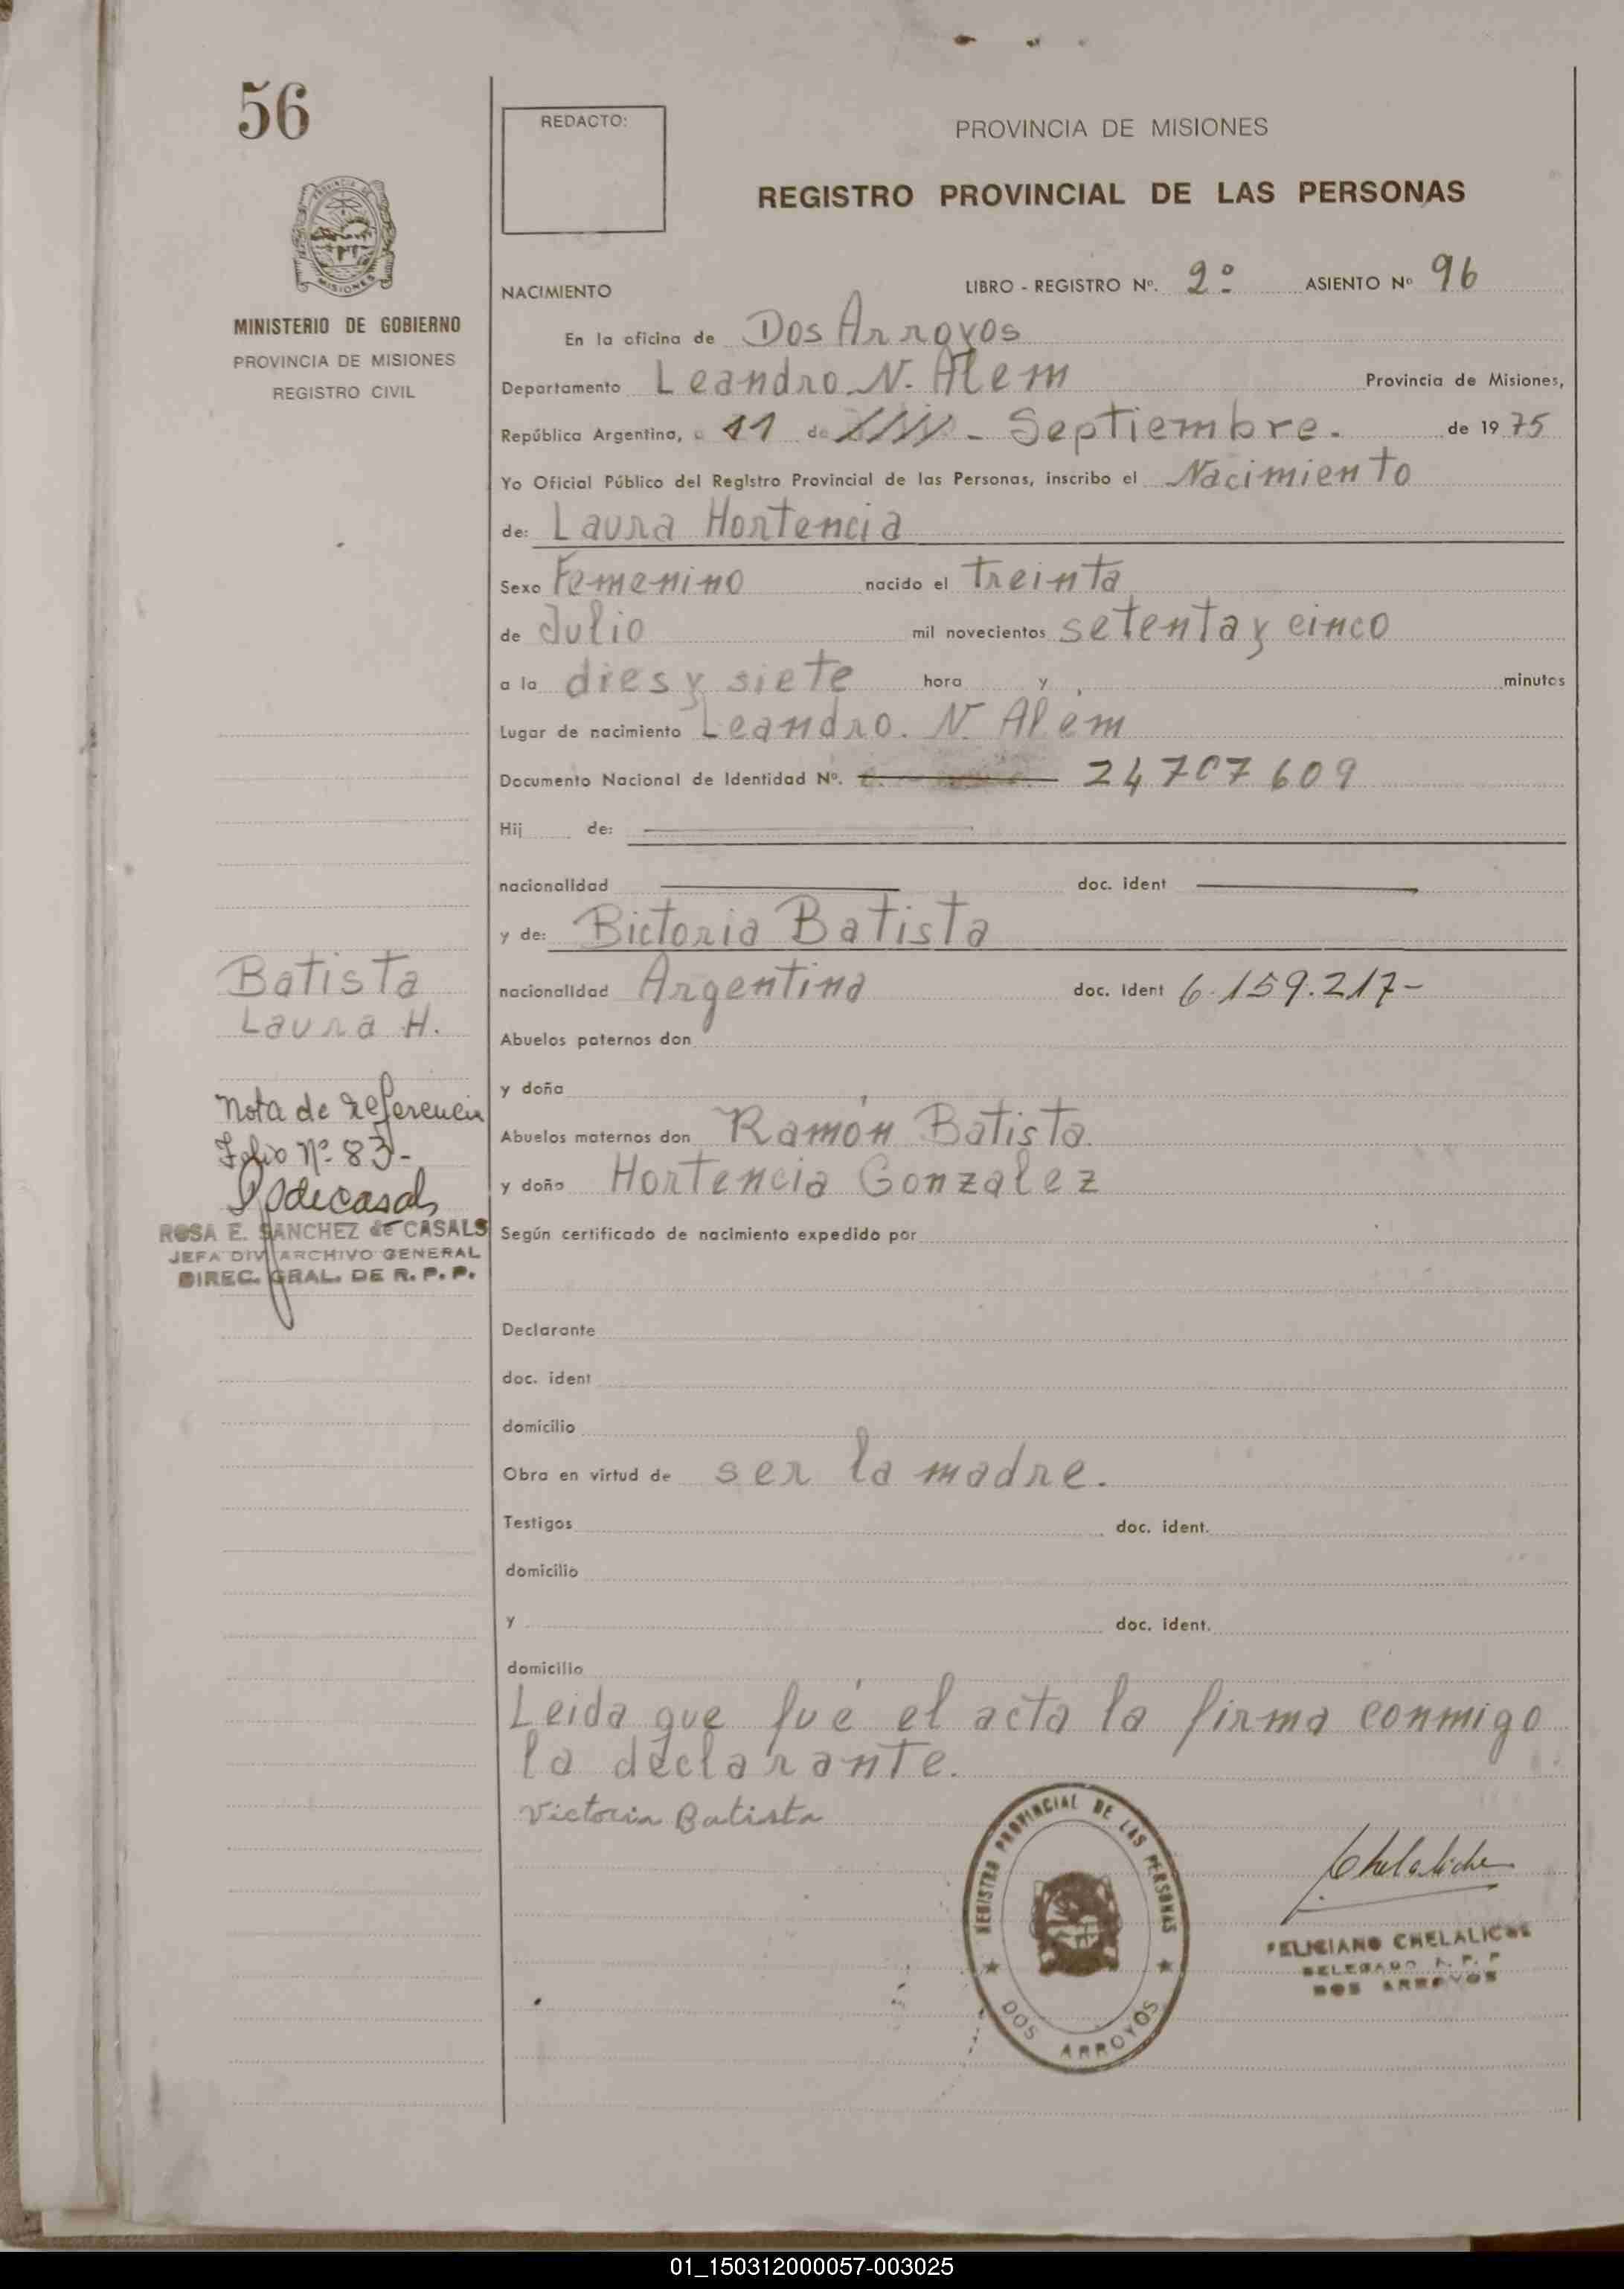 56
PROVINCIA DE
MISIONES
MINISTERIO DE GOBIERNO
PROVINCIA DE MISIONES
REGISTRO CIVIL
REDACTO:
PROVINCIA DE MISIONES
REGISTRO PROVINCIAL DE LAS PERSONAS
NACIMIENTO LIBRO - REGISTRO Nº. 2º ASIENTO Nº 96
En la oficina de Dos Arroyos
Departamento Leandro N. Alem Provincia de Misiones,
República Argentina, a 11 de Septiembre. de 19 75
Yo Oficial Público del Registro Provincial de las Personas, inscribo el Nacimiento
de: Laura Hortencia
Sexo Femenino nacido el treinta
de Julio mil novecientos setenta y cinco
a la dies y siete hora y minutos
Lugar de nacimiento Leandro. N. Alem
Documento Nacional de Identidad Nº. 24707609
Hij de:
nacionalidad doc. ident
y de: Bictoria Batista
nacionalidad Argentina doc. ident 6.159.217-
Abuelos paternos don
y doña
Abuelos maternos don Ramón Batista
y doña Hortencia Gonzalez
Según certificado de nacimiento expedido por
Declarante
doc. ident
domicilio
Obra en virtud de ser la madre.
Testigos doc. ident.
domicilio
y doc. ident.
domicilio
Leida que fué el acta la firma conmigo
la declarante.
Victoria Batista
Batista
Laura H.
Nota de referencia
Folio Nº 83-
ROSA E. SANCHEZ de CASALS
JEFA DIV ARCHIVO GENERAL
DIREC. GRAL. DE R. P. P.
REGISTRO PROVINCIAL DE LAS PERSONAS
DOS ARROYOS
FELICIANO
DELEGADO R. P. P
DOS ARROYOS
01_150312000057-003025